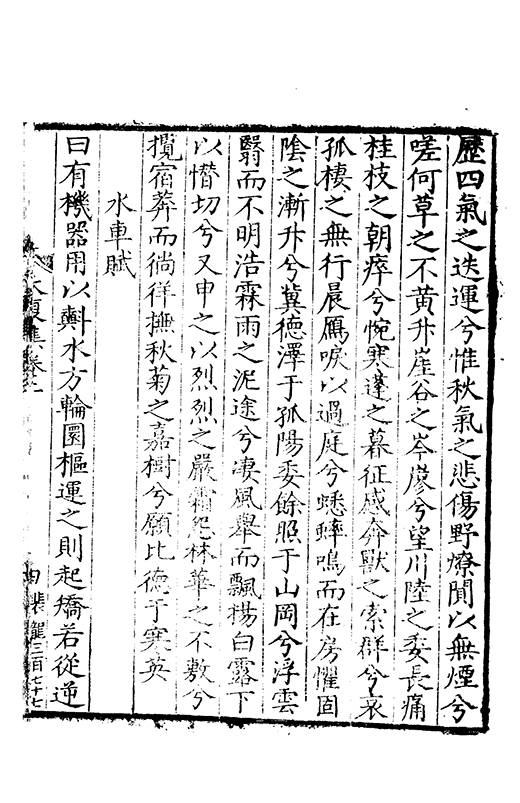 歷四氣之迭運兮惟秋氣之悲傷野燎闃以無煙兮
嗟何草之不黃升崖谷之岑廖兮望川陸之委長痛
桂枝之朝瘁兮惋寒蓬之暮征感奔獸之索群兮哀
孤棲之無行晨鴈唳以過庭兮蟋蟀鳴而在房懼固
陰之漸升兮冀德澤于孤陽委餘照于山岡兮浮雲
翳而不明浩霖雨之泥途兮凄風舉而飄楊白露下
以憯切兮又申之以烈烈之嚴霜怨林華之不敷兮
攬宿莽而徜徉撫秋菊之嘉樹兮願比德于寒英
水車賦
曰有機器用以㪺水方輪圜樞運之則起矯若從逆
大復集卷二
裴龍三百七十七